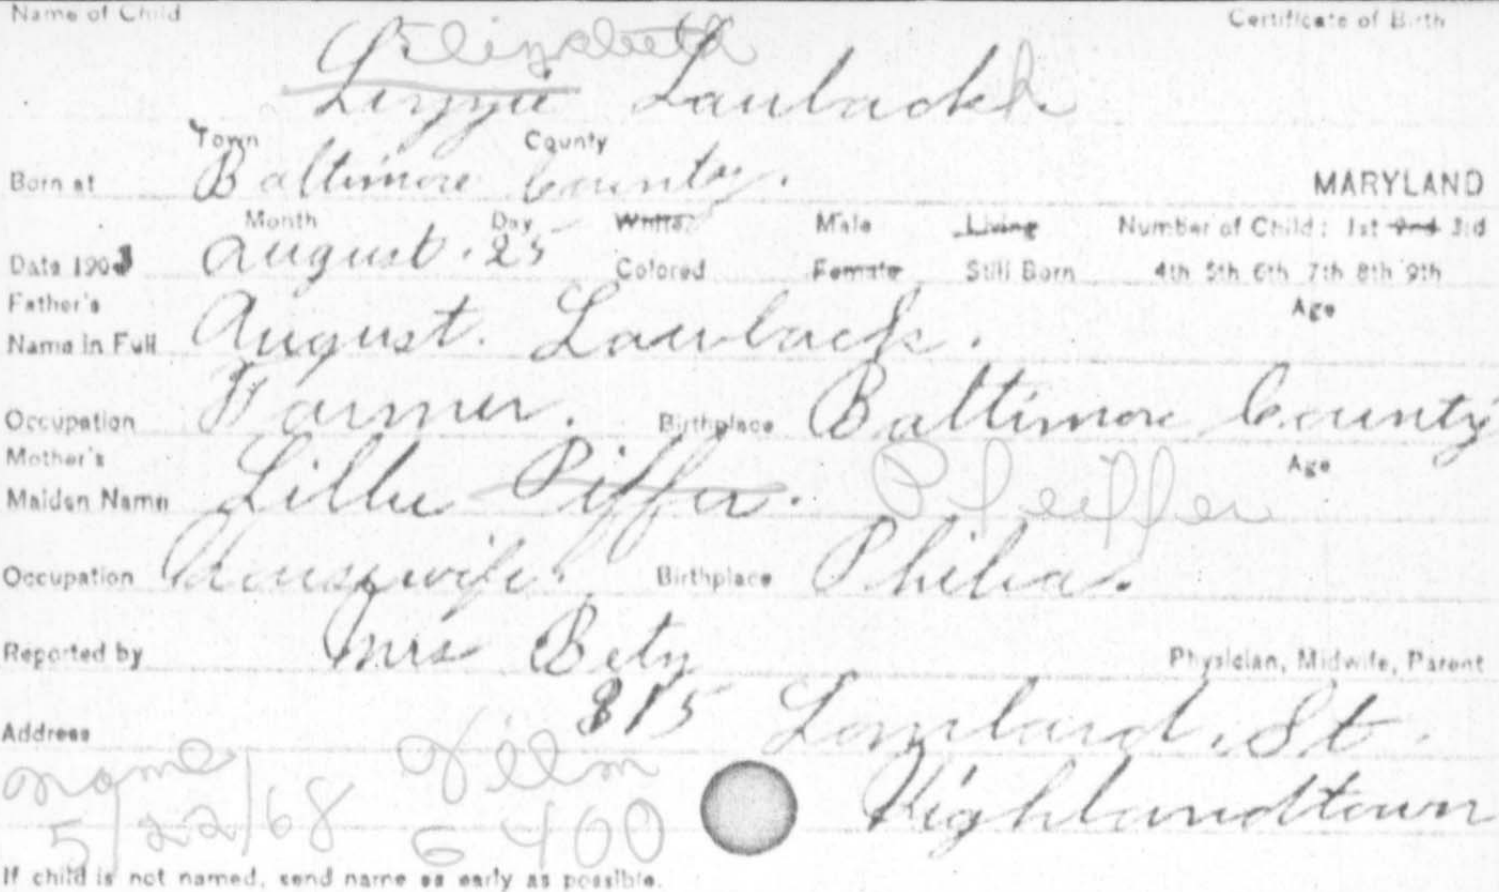 Name of Child Certificate of Birth
Elizabeth
Lizzie Laubach
Town County
Born at Baltimore County. MARYLAND
Month Day White Male Living Number of Child: 1st 2nd 3rd
Date 1903 August. 25 Colored Female Still Born 4th 5th 6th 7th 8th 9th
Father's Age
Name in Full August. Lauback.
Occupation Farmer. Birthplace Baltimore County
Mother's Age
Maiden Name Lillie Piffer. Pfeiffer
Occupation Housewife. Birthplace Phila.
Reported by Mrs Betz Physician, Midwife, Parent
Address 815 Lombard. St.
Highlandtown
name Film
5/22/68 6400
If child is not named, send name as early as possible.